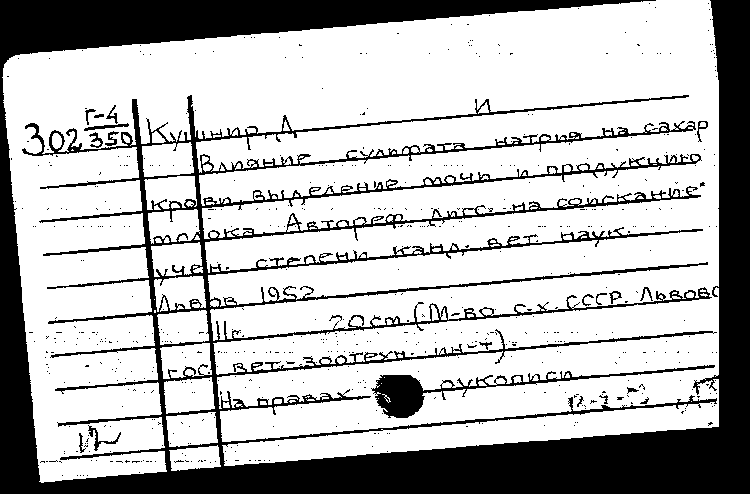 И
Г-4
302 350 Кушнир, Д
Влияние сульфата натрия на сахар
крови, выделение мочи и продукцию
молока. Автореф. дисс. на соискание
учен. степени канд. вет. наук.
Львов 1952.
11с. 20 см. (М-во с.-х. СССР. Львовс
гос. вет.-зоотехн. ин-т).
На правах рукописи